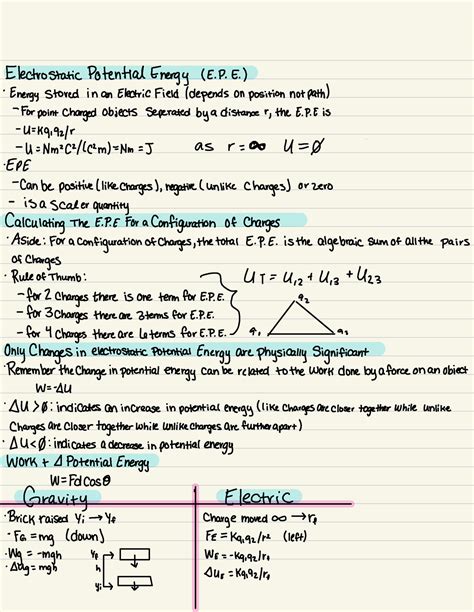 Electrostatic Potential Energy (E.P.E.)
· Energy Stored in an Electric Field (depends on position not path)
- For point Charged objects Seperated by a distance r, the E.P.E is
- U = Kq₁q₂/r
- U = Nm²C²/(C²m) = Nm = J as r = ∞ U = Ø
· EPE
- Can be positive (like Charges), negative (unlike Charges) or zero
- is a Scaler quantity
Calculating The E.P.E For a Configuration of Charges
· Aside: For a Configuration of Charges, the total E.P.E. is the algebraic Sum of all the pairs
of Charges
· Rule of Thumb: U T = U₁,₂ + U₁,₃ + U₂₃
- for 2 Charges there is one term for E.P.E. q₂
- for 3 Charges there are 3 terms for E.P.E.
- for 4 Charges there are 6 terms for E.P.E. q₁ q₃
Only Changes in electrostatic Potential Energy are Physically Significant
· Remember the Change in potential energy can be related to the Work done by a force on an object
W = -ΔU
· ΔU > Ø: indicates an increase in potential energy (like Charges are Closer together While unlike
Charges are Closer together While unlike Charges are further apart)
· ΔU < Ø: indicates a decrease in potential energy
Work + Δ Potential Energy
W = Fd cos θ
Gravity Electric
· Brick raised yᵢ → y_f Charge moved ∞ → r_f
· F_G = mg (down) F_E = Kq₁q₂/r² (left)
· Wg = -mgh y_f W_E = -Kq₁q₂/r_f
· ΔUg = mgh h ΔU_E = Kq₁q₂/r_f
yᵢ